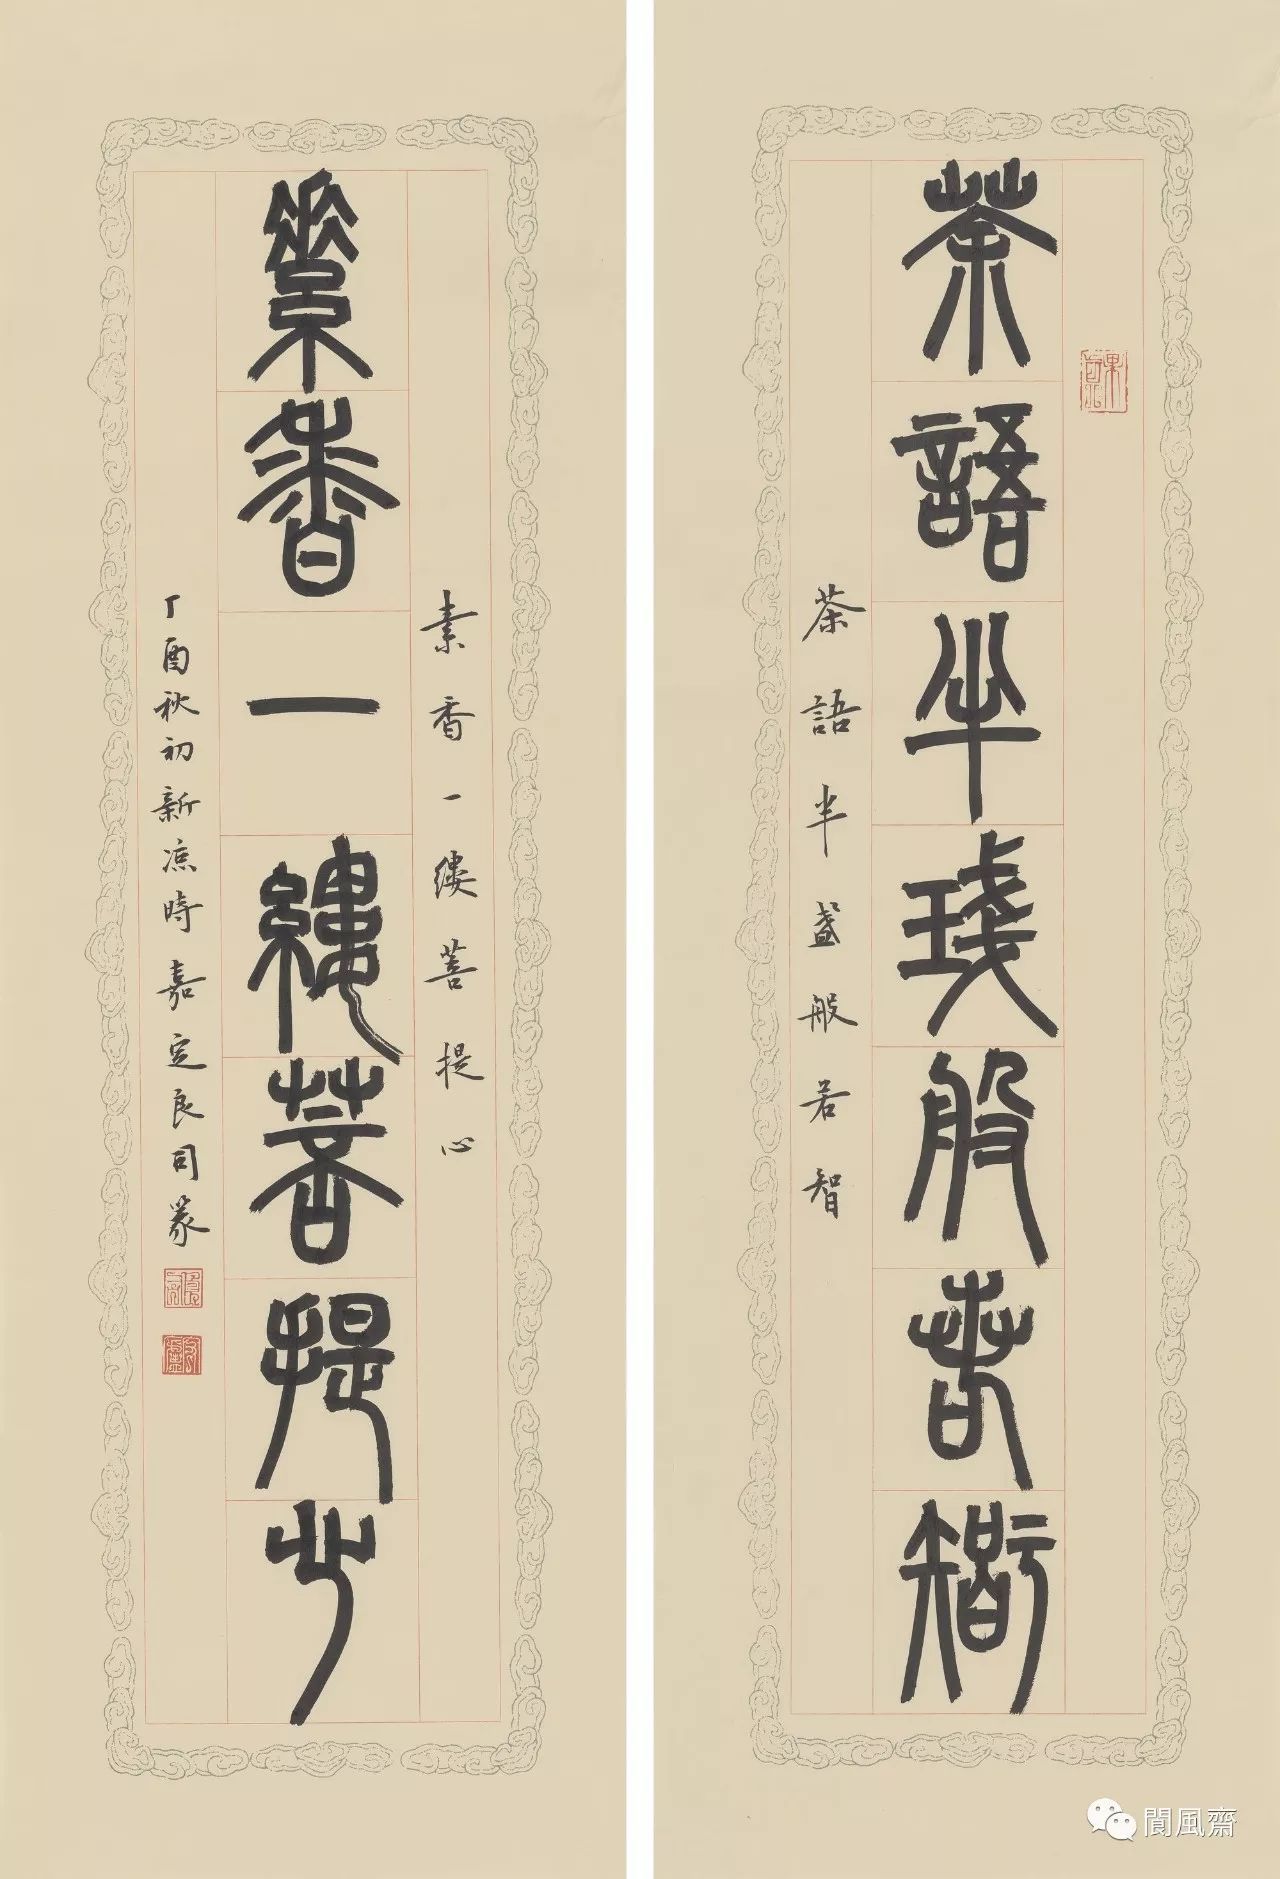 茶語半琖般若智
茶語半盞般若智
素香一縷菩提心
素香一缕菩提心
丁酉秋初新凉時嘉定良司篆
閬風齋